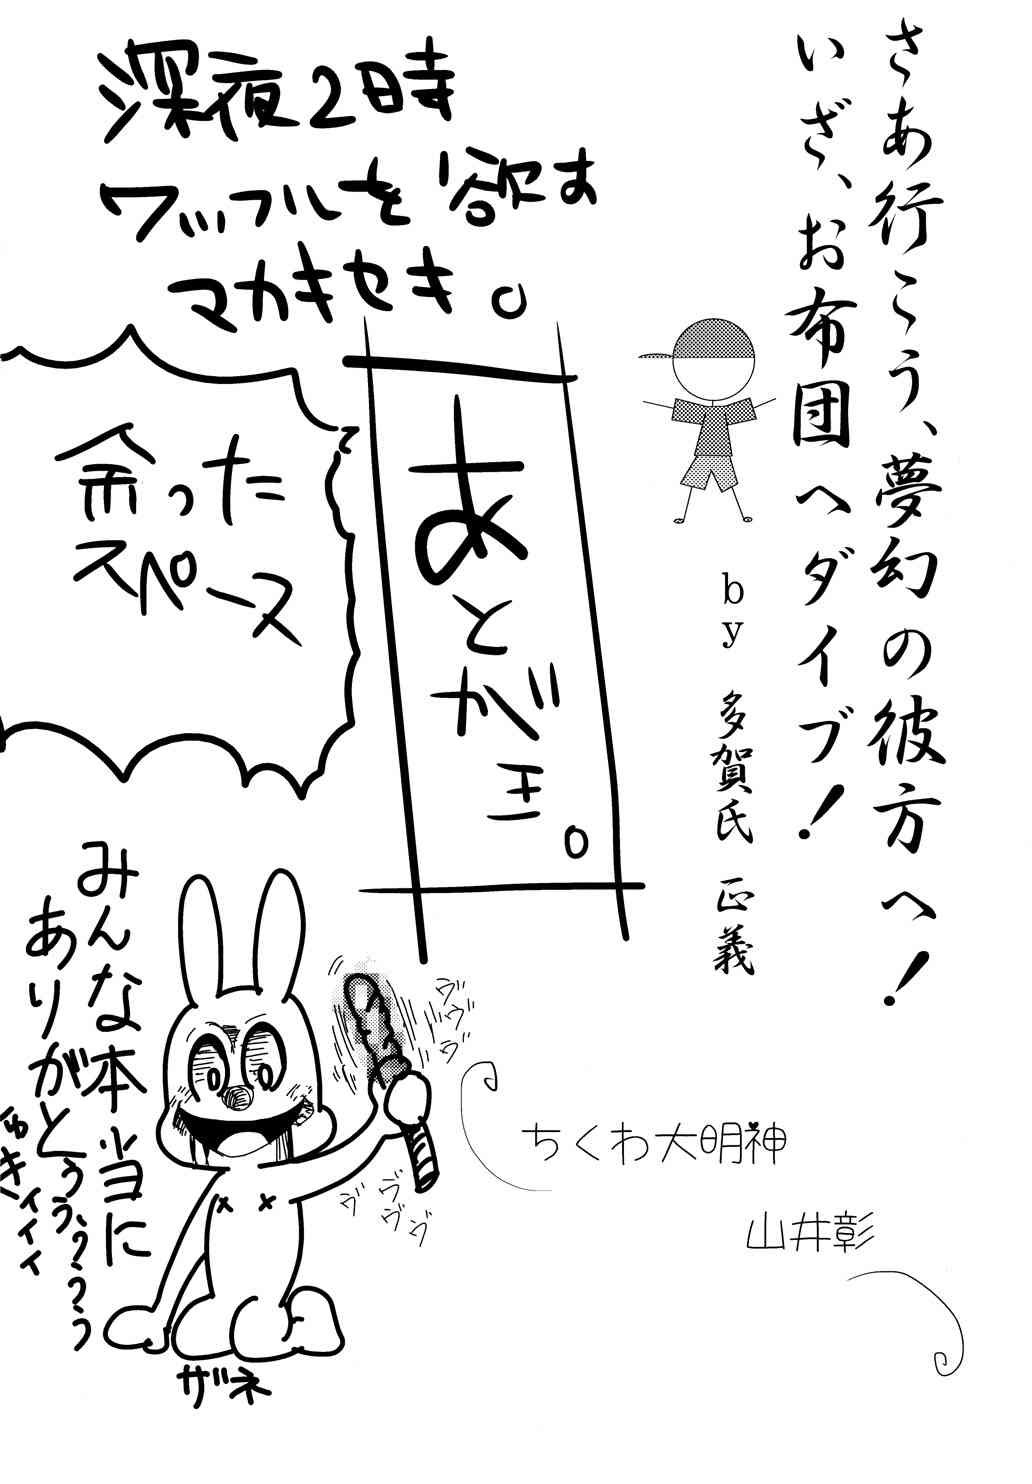 さあ行こう、夢幻の彼方へ!
いざ、お布団へダイブ!
by 多賀氏 正義
深夜2時
ワッフルを欲す
マカキセキ。
あとがき。
余った
スペース
て
みんな本当に
ありがとぅぅぅ、ぅぅぅ
ゥキィィィ
ヴヴヴ
ヴヴヴヴ
ザネ
ちくわ大明神
山井彰